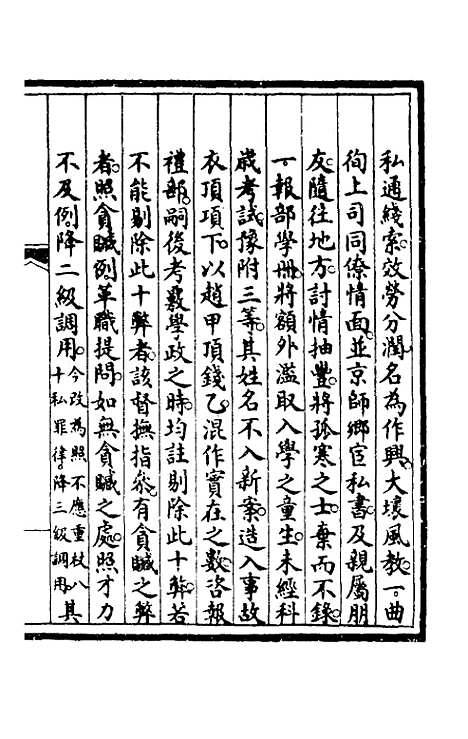 私通綫索效勞分潤名為作興大壞風教一曲
徇上司同僚情面並京師鄉宦私書及親屬朋
友隨往地方討情抽豐將孤寒之士棄而不錄
一報部學冊將額外濫取入學之童生未經科
歲考試豫附三等其姓名不入新案造入事故
衣頂項下以趙甲頂錢乙混作實在之數咨報
禮部嗣後考覈學政之時均註剔除此十弊若
不能剔除此十弊者該督撫指叅有貪贓之弊
者照貪贓例革職提問如無貪贓之處照才力
不及例降二級調用今改為照不應重杖八十私罪律降三級調用其